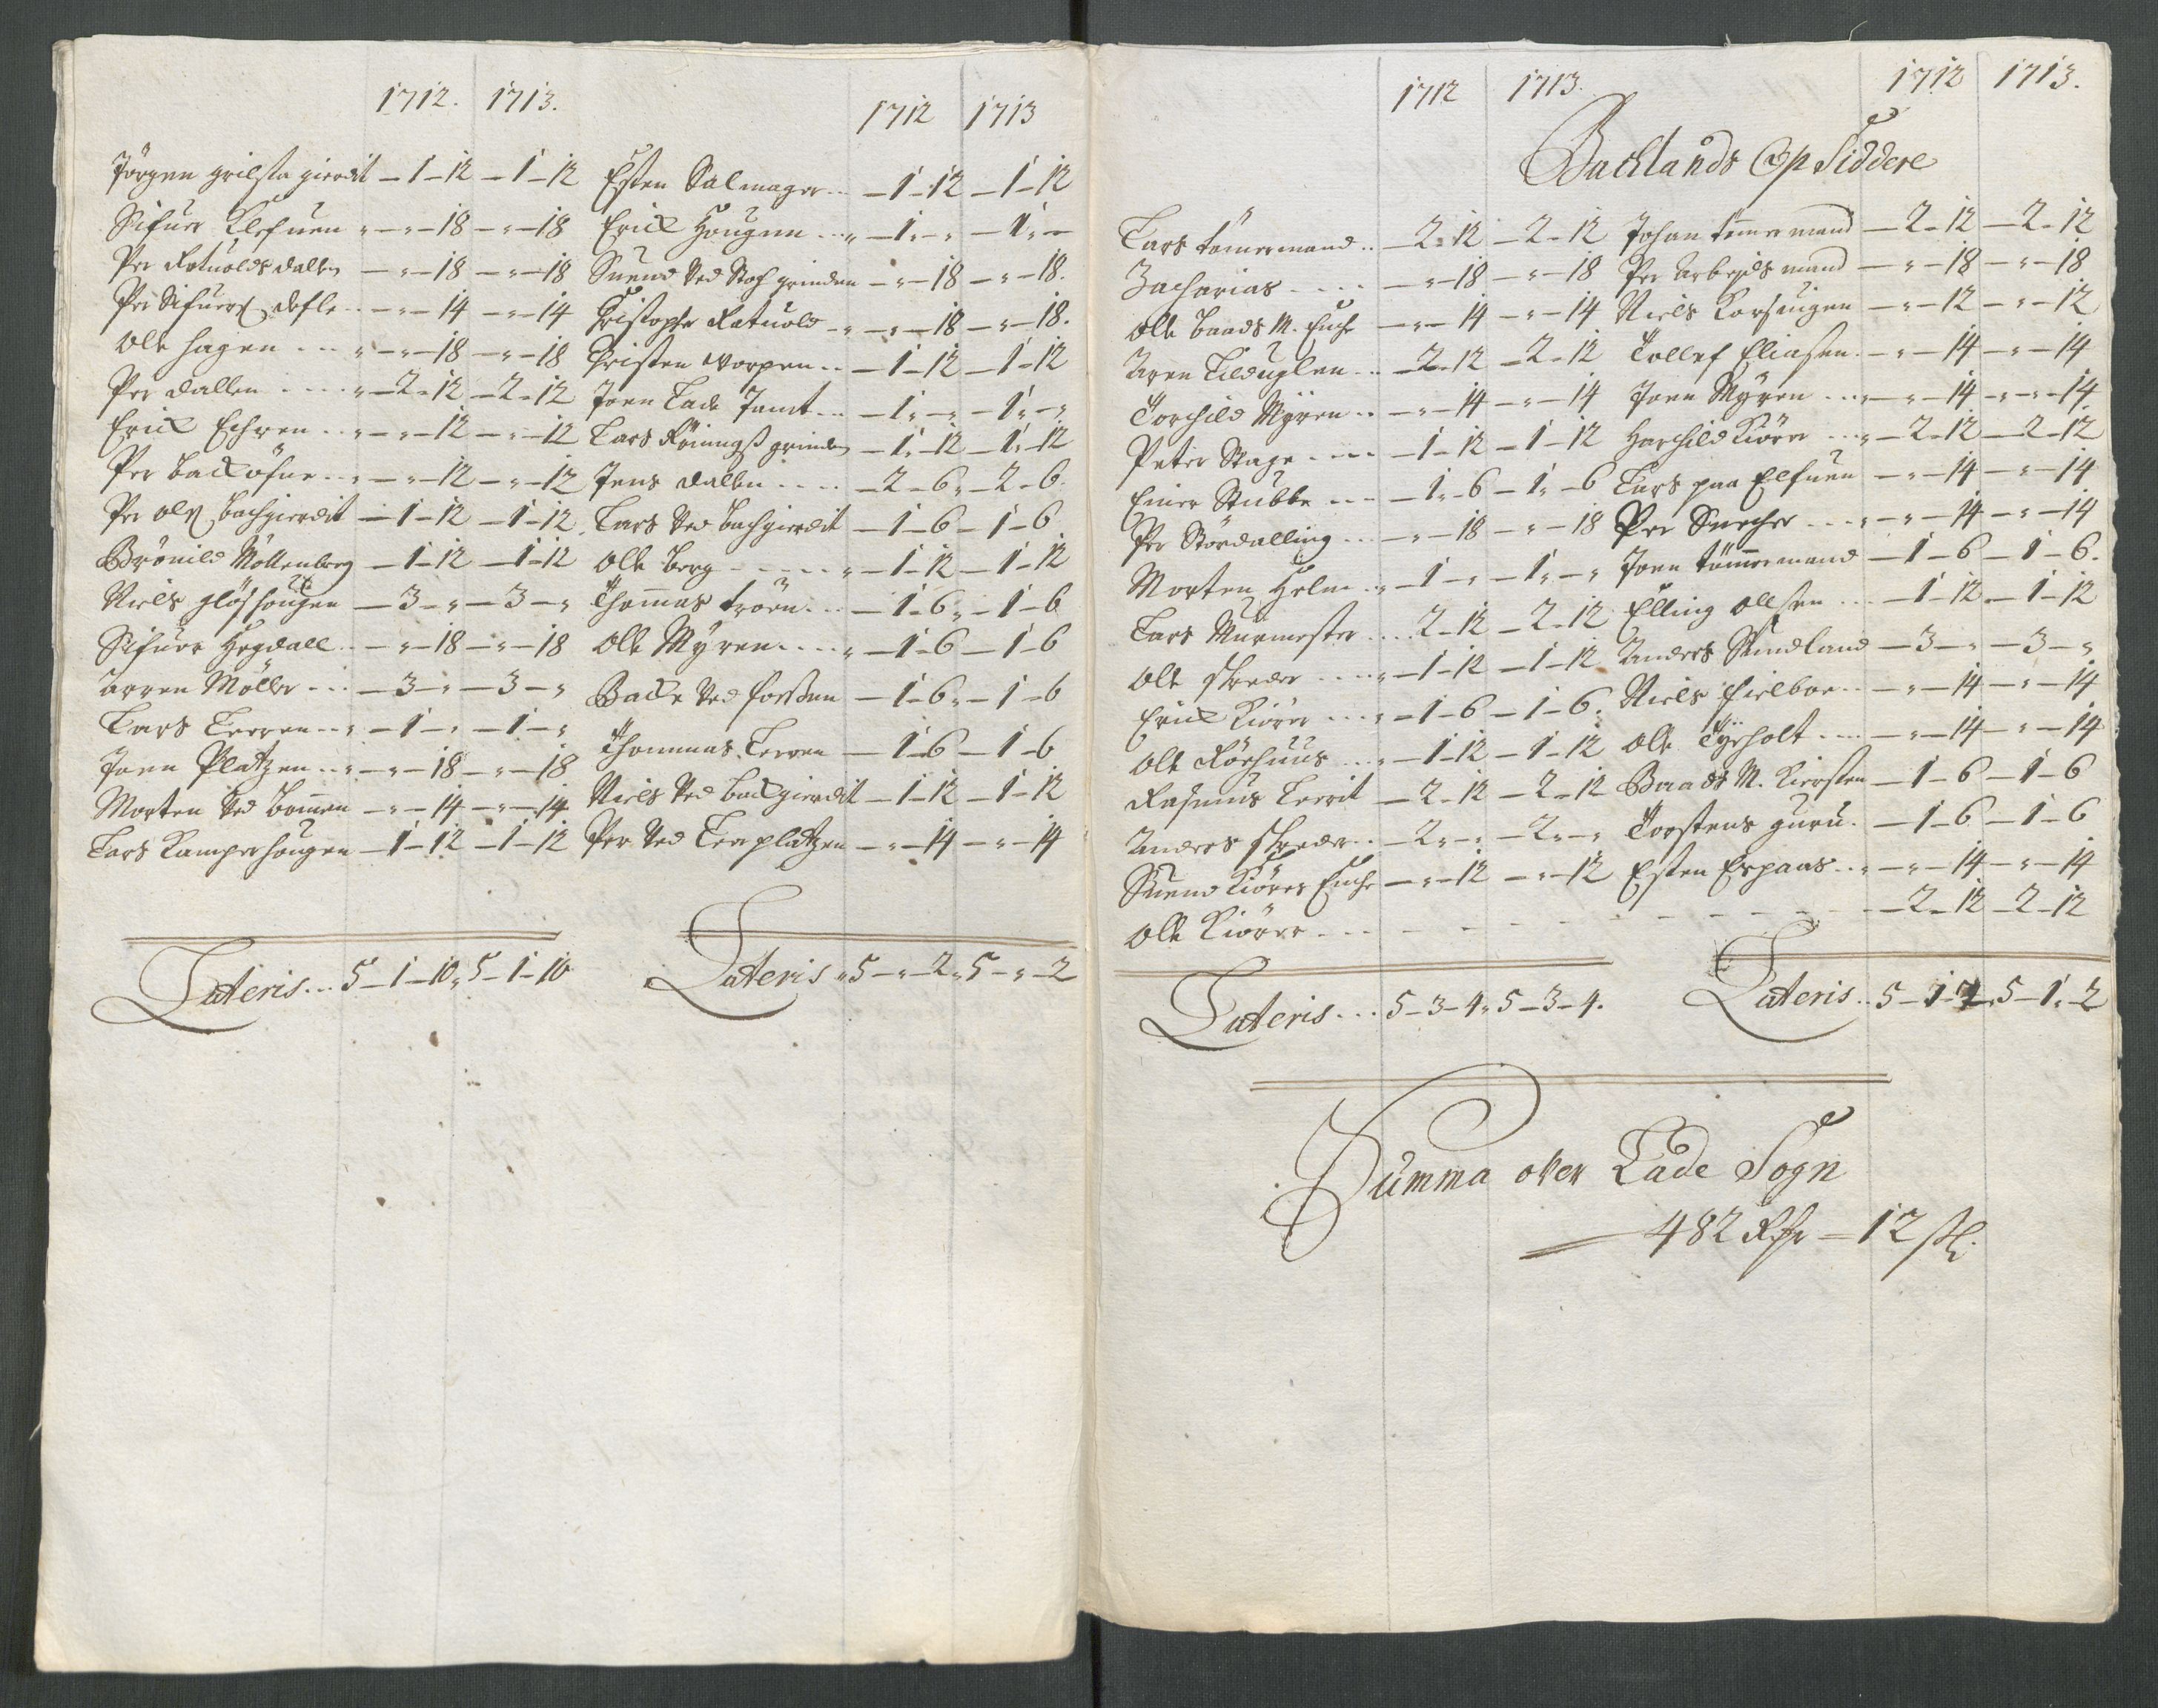 1712. 1713.
Jörgen gilsta gierdit - 1 - 12 - 1 - 12
Sifuer Klefuen " - " - 18 - " - 18
Per Rotuolds dallen - " - 18 - " - 18
Per Sifuers. Defle - " - 14 - " - 14
Ole hagen ... " - " - 18 - " - 18
Per dallen .... " - 2 - 12 - 2 - 12
Erick Echren .. " - " - 12 - " - 12
Per backöfne .. " - " - 12 - " - 12
Per ols. bachgierdit - 1 - 12 - 1 - 12
Brönild Möllenberg - 1 - 12 - 1 - 12
Niels glöshougen - 3 - " - 3 - "
Sifuer Hegdall .. - " - 18 - " - 18
Arren Möller ... - 3 - " - 3 - "
Lars Leeren .. " - 1 - " - 1 - "
Joen Platzen .. " - " - 18 - " - 18
Morten Ved bommen - " - 14 - " - 14
Lars Kamperhougen - 1 - 12 - 1 - 12
Lateris ... 5 - 1 - 10 " 5 - 1 - 10
1712 1713
Esten Salmager .. - 1 - 12 - 1 - 12
Erick Hougen ... " - 1 " - " - 1 " -
Suend Ved Stoch grinden - " - 18 - " - 18.
Cristopher Rotuold " - " - 18 - " - 18.
Cristen Vorpen .. - 1 - 12 - 1 - 12
Joen Lade Jamt ... - 1 " - " - 1 " - "
Lars Rönningß grinden - 1 " - 12 - 1 " - 12
Jens dallen .... - 2 - 6 " - 2 - 6
Lars Ved bachgierdit - 1 - 6 - 1 - 6
Ole berg ..... " - 1 - 12 - 1 - 12
Thommas tröen ... - 1 - 6 " - 1 - 6
Ole Myren .... " - 1 - 6 - 1 - 6
Backe Ved forßen - 1 - 6 " - 1 - 6
Thommas Leeren - 1 - 6 - 1 - 6
Niels Ved backgierdit - 1 - 12 - 1 - 12
Per Ved Leerplatzen - " - 14 - " - 14
Lateris " 5 - " - 2 " 5 - " - 2
1712 1713.
1712 1713.
Bachlands Opsiddere
Lars tömermand .. - 2 - 12 - 2 - 12
Zacharias .... - " - 18 - " - 18
Ole baads M. Enche - " - 14 - " - 14
Aren Lilduglen .. - 2 - 12 - 2 - 12
Torchild Myren .. - " - 14 - " - 14
Peter Stage .... - 1 - 12 - 1 - 12
Einer Stubbe ... - 1 " - 6 - 1 " - 6
Per Stördalling ... - " - 18 - " - 18
Morten Holm .. " - 1 - " - 1 " - "
Lars Murmester ... 2 - 12 - 2 - 12
Ole skreder .... " - 1 - 12 - 1 - 12
Erick Kiörer ... " - 1 - 6 - 1 - 6.
Ole Röshuus ... " - 1 - 12 - 1 - 12
Rasmus Leerit - 2 - 12 - 2 - 12
Anders skreder .. - 2 " - " - 2 " - "
Suend Kiörers Enche - " - 12 - " - 12
Ole Kiörer ...
Lateris ... 5 - 3 - 4 " 5 - 3 - 4.
Johan tömermand - 2 - 12 - 2 - 12
Per Arbejdsmand - " - 18 - " - 18
Niels Korsuigen - " - 12 - " - 12
Tollef Eliasen . - " - 14 - " - 14
Joen Myren ... " - " - 14 - " - 14
Harchild Kiörer ... " - 2 - 12 - 2 - 12
Lars paa Elfuen - " - 14 - " - 14
Per Snecher ... " - " - 14 - " - 14
Joen tömmermand - 1 - 6 - 1 - 6.
Elling Ollsen ... - 1 - 12 - 1 - 12
Anders Sundland - 3 - " - 3 - "
Niels Fielboe .. - " - 14 - " - 14
Ole Tyrholt .... - " - 14 - " - 14
Baads M. Kiersten - 1 - 6 - 1 - 6
Torstens guru . - 1 - 6 - 1 - 6
Esten Espaas .. " - " - 14 - " - 14
- 2 - 12 - 2 - 12
Lateris .. 5 - 1 - 2 " 5 - 1 " - 2
Summa ofver Lade Sogn
482 Rdr - 12 sk